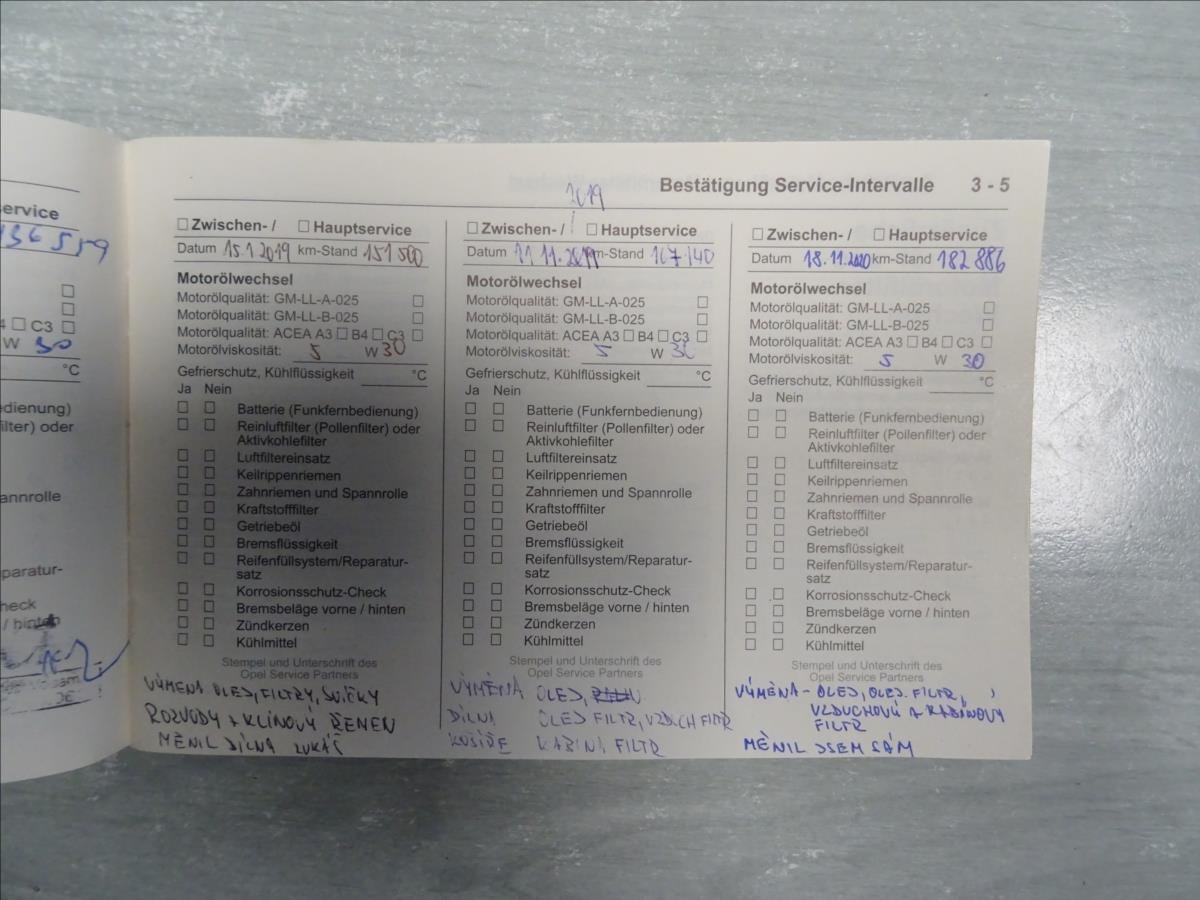 ervice
136 559
C3
W 30
°C
edienung)
ilter) oder
annrolle
paratur-
heck
/ hinten
Bestätigung Service-Intervalle 3 - 5
Zwischen- / Hauptservice
Datum 15.1 2019 km-Stand 151 500
Motorölwechsel
Motorölqualität: GM-LL-A-025
Motorölqualität: GM-LL-B-025
Motorölqualität: ACEA A3 B4 C3
Motorölviskosität: 5 W 30
Gefrierschutz, Kühlflüssigkeit °C
Ja Nein
Batterie (Funkfernbedienung)
Reinluftfilter (Pollenfilter) oder
Aktivkohlefilter
Luftfiltereinsatz
Keilrippenriemen
Zahnriemen und Spannrolle
Kraftstofffilter
Getriebeöl
Bremsflüssigkeit
Reifenfüllsystem/Reparatur-
satz
Korrosionsschutz-Check
Bremsbeläge vorne / hinten
Zündkerzen
Kühlmittel
Stempel und Unterschrift des
Opel Service Partners
VÝMĚNA OLEJ, FILTRY, SVÍČKY
ROZVODY + KLÍNOVÝ ŘEMEN
MĚNIL DÍLNA LUKÁŠ
2019
Zwischen- / Hauptservice
Datum 11.11.2019 km-Stand 167 140
Motorölwechsel
Motorölqualität: GM-LL-A-025
Motorölqualität: GM-LL-B-025
Motorölqualität: ACEA A3 B4 C3
Motorölviskosität: 5 W 30
Gefrierschutz, Kühlflüssigkeit °C
Ja Nein
Batterie (Funkfernbedienung)
Reinluftfilter (Pollenfilter) oder
Aktivkohlefilter
Luftfiltereinsatz
Keilrippenriemen
Zahnriemen und Spannrolle
Kraftstofffilter
Getriebeöl
Bremsflüssigkeit
Reifenfüllsystem/Reparatur-
satz
Korrosionsschutz-Check
Bremsbeläge vorne / hinten
Zündkerzen
Kühlmittel
Stempel und Unterschrift des
Opel Service Partners
VÝMĚNA OLEJ,
DÍLNA OLEJ FILTR, VZDUCH FILTR
KABINI, FILTR
Zwischen- / Hauptservice
Datum 18.11.2020 km-Stand 182 886
Motorölwechsel
Motorölqualität: GM-LL-A-025
Motorölqualität: GM-LL-B-025
Motorölqualität: ACEA A3 B4 C3
Motorölviskosität: 5 W 30
Gefrierschutz, Kühlflüssigkeit °C
Ja Nein
Batterie (Funkfernbedienung)
Reinluftfilter (Pollenfilter) oder
Aktivkohlefilter
Luftfiltereinsatz
Keilrippenriemen
Zahnriemen und Spannrolle
Kraftstofffilter
Getriebeöl
Bremsflüssigkeit
Reifenfüllsystem/Reparatur-
satz
Korrosionsschutz-Check
Bremsbeläge vorne / hinten
Zündkerzen
Kühlmittel
Stempel und Unterschrift des
Opel Service Partners
VÝMĚNA - OLEJ, OLEJ. FILTR,
VZDUCHOVÝ A KABINOVÝ
FILTR
MĚNIL JSEM SÁM